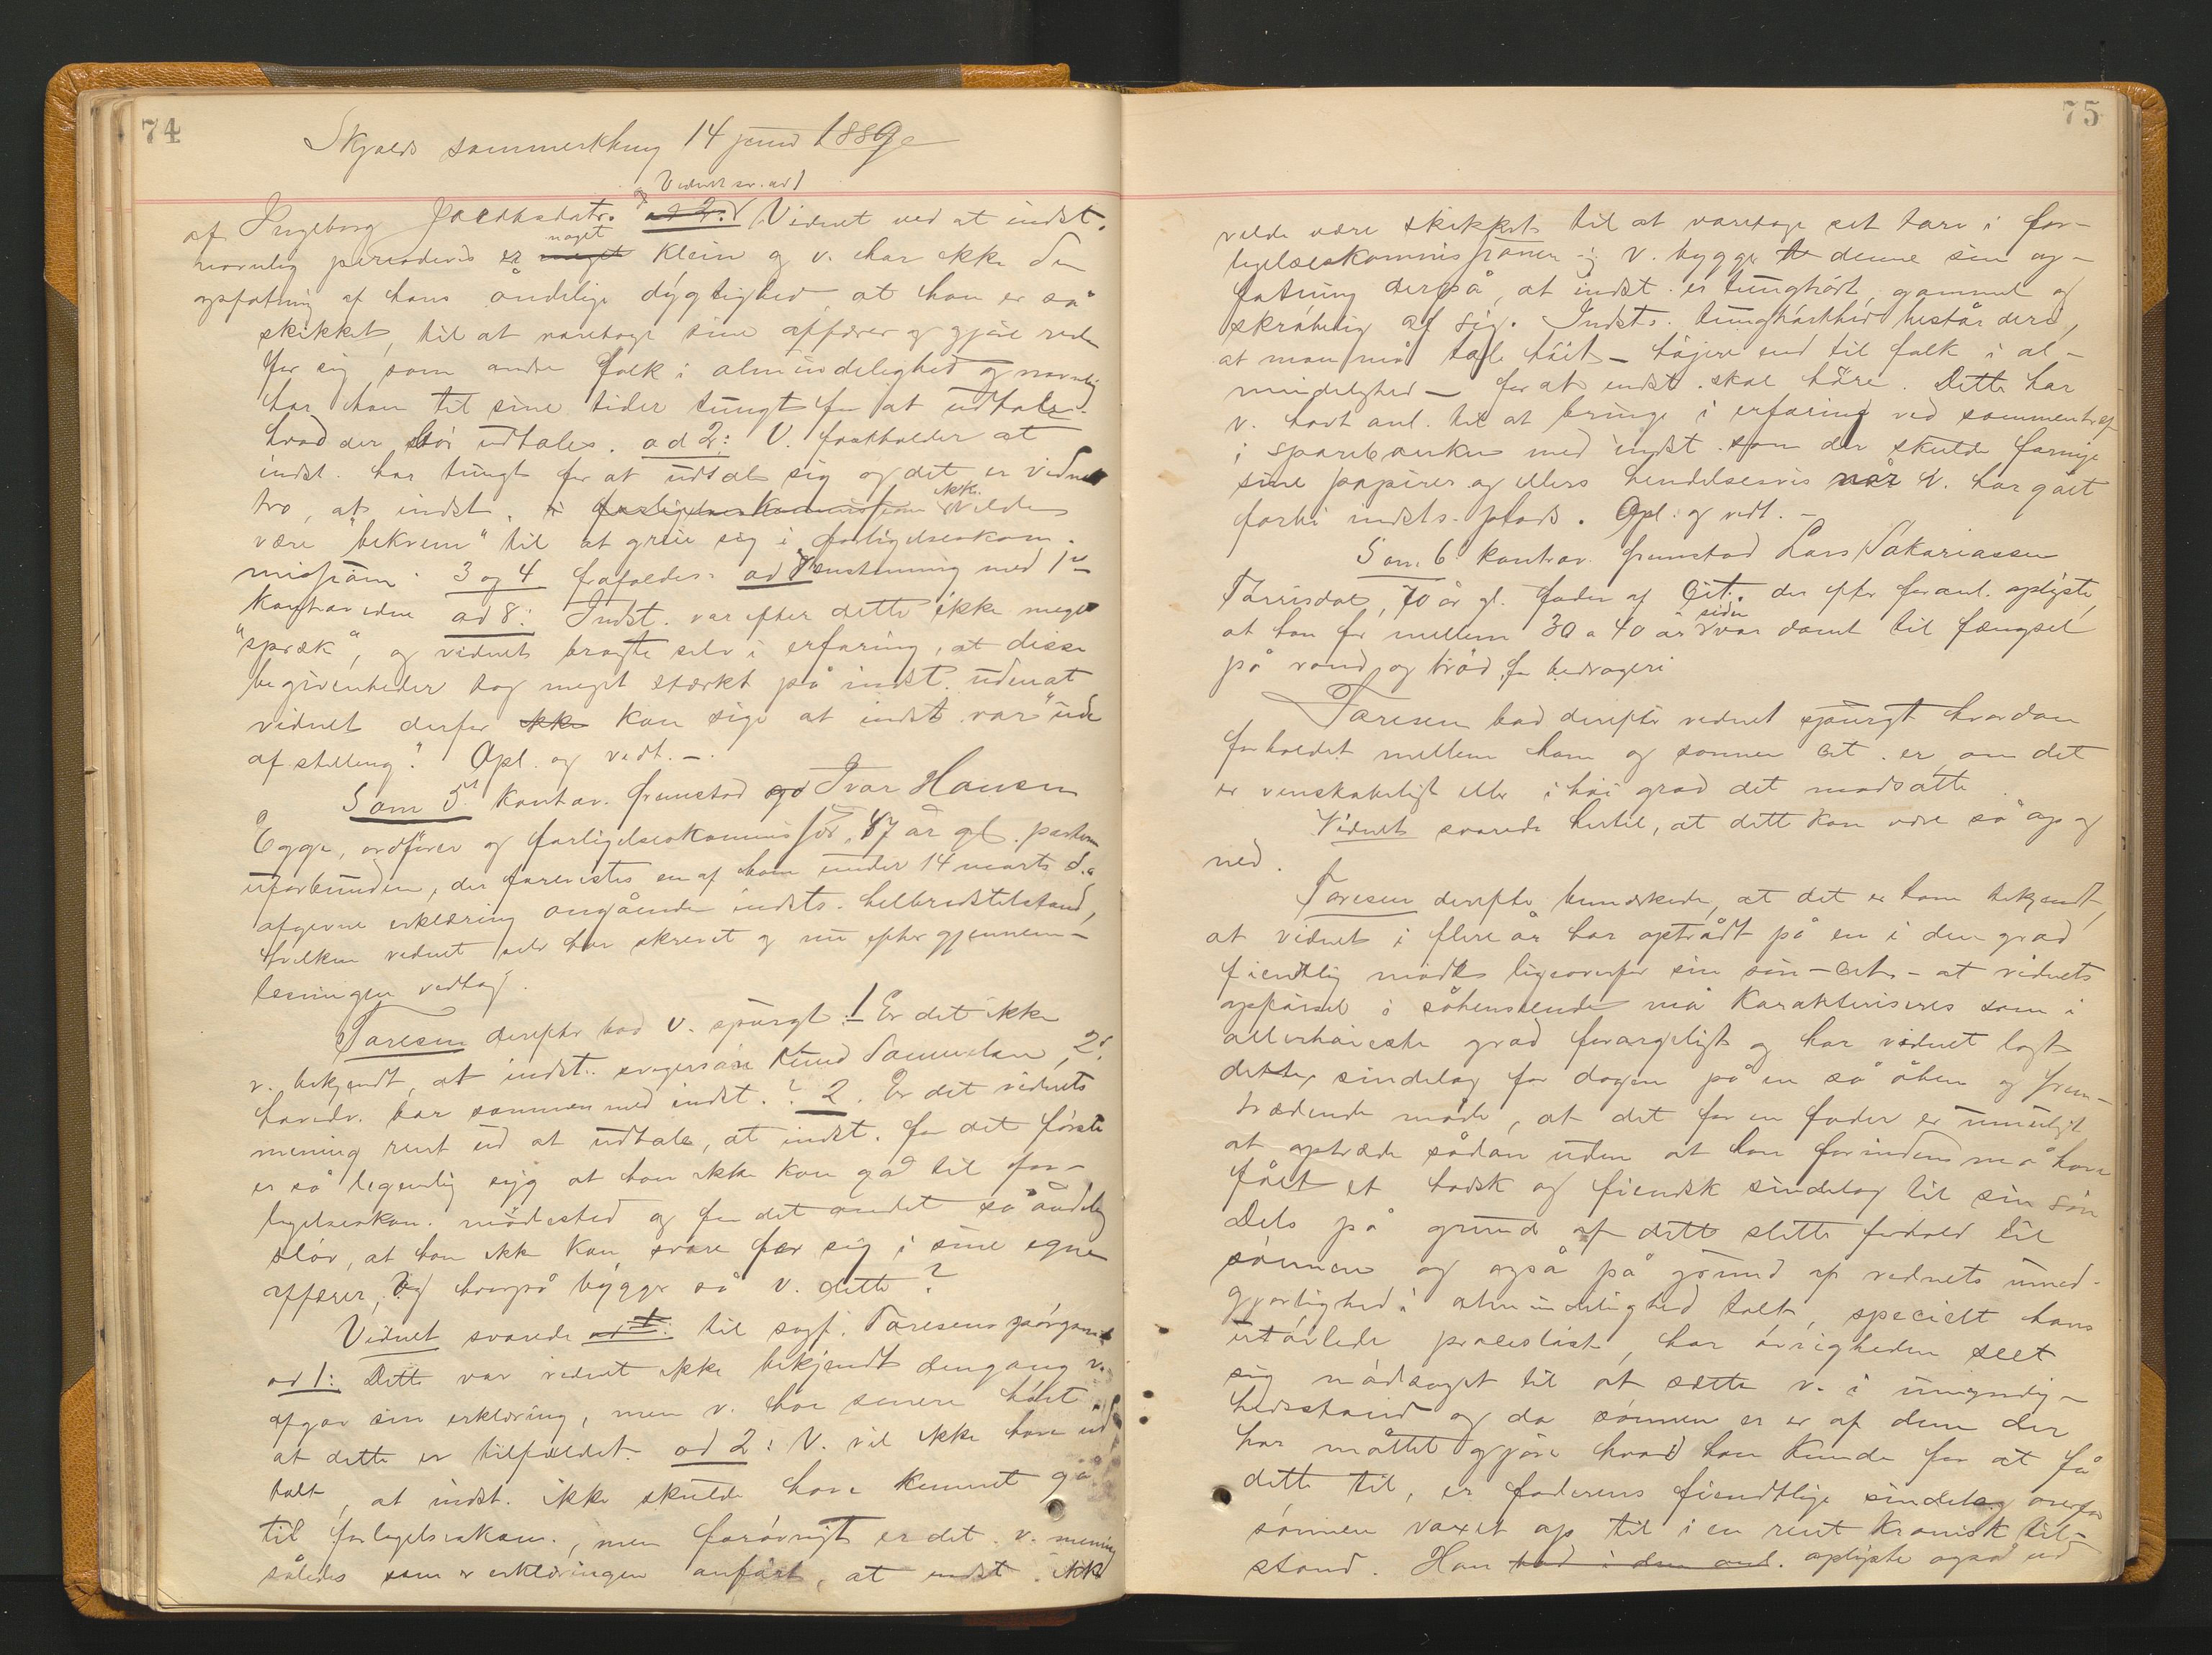 74
Skjolds sommerthing 14 juni 1889
og Vidnet sv. ad 1
af Ingeborg Jacobsdatr. ad 2: Vidnet ved at indst.
navnlig periodevis er noget meget klein og v. har ikke den
opfatning af hans åndelige dygtighed at han er så
skikket, til at varetage sine affærer og gjøre rede
for sig som andre folk i almindelighed og navnlig
har han til sine tider tungt for at udtale
hvad der bør udtales. ad 2: V. fastholder at
indst. har tungt for at udtale sig og det er vidnets
tro, at indst. i forligelseskommissionen ikke vilde
være "bekvem" til at greie sig i forligelseskom-
missionen. 3 og 4 frafaldes. ad 7 enstemmig med 1ste
kontravidne ad 8: Indst. var efter dette ikke meget
"spræk", og vidnet bragte selv i erfaring, at disse
begivenheder tog meget stærkt på indst. uden at
vidnet derfor ikke kan sige at indst. var "ude
af stilling". Opl. og vedt. -
Som 5t kontrav. fremstod Ivar Hansen
Egge, ordfører og forligelseskommissær, 47 år gl. partern
uforbunden, der forevistes en af ham under 14 marts d.a
afgivne erklæring angående indsts. helbredstilstand,
hvilken vidnet selv har skrevet og nu efter gjennem-
læsningen vedtog.
Taresen derefter bad v. spurgt: 1 Er det ikke
v. bekjendt, at indst. svigersøn Knud Samuelsen
har sammen med indst.? 2. Er det vidnets
mening rent ud at udtale, at indst. for det første
er så legemlig syg at han ikke kan gå til for-
ligelseskom. mødested og for det andet så åndelig
sløv, at han ikke kan svare for sig i sine egne
affærer, og hvorpå bygger så v. dette?
Vidnet svarede ad 1: til sagf. Taresens spørgsmål
ad 1: Dette var vidnet ikke bekjendt dengang v.
afgav sin erklæring, men v. har senere hørt
at dette er tilfældet. ad 2: V. vil ikke have ud-
talt, at indst. ikke skulde have kunnet gå
til forligelseskom., men forøvrigt er det v. mening
således som i erklæringen anført, at indst. ikke
75
vilde være skikket til at varetage sit tarv i for-
ligelseskommissionen og v. bygge denne sin op-
fatning derpå, at indst. er tunghørt, gammel og
skrøbelig af sig. Indsts. tunghørthed består deri,
at man må tale høit - høiere end til folk i al-
mindelighed - for at indst. skal høre. Dette har
v. havt anl. til at bringe i erfaring ved sammentræf
i sparebanken med indst. som der skulde fornye
sine papirer og ellers hendelsesvis når v. har gået
forbi indsts. plads. Opl. og vedt. -
Som 6 kontrav. fremstod Lars Sakariassen
Tarrisdal, 70 år gl. fader af Cit. der efter foranl. oplyste,
at han for mellem 30 a 40 år siden var dømt til fængsel
på vand og brød for bedrageri
Taresen bad derefter vidnet spurgt hvordan
forholdet mellem ham og sønnen Cit. er, om det
er venskabeligt eller i høi grad det modsatte.
Vidnet svarede hertil, at dett kan være så op og
ned.
Taresen derefter bemærkede, at det er ham bekjendt,
at vidnet i flere år har optrådt på en i den grad
fiendtlig måde ligeoverfor sin søn - Cit. - at vidnets
opførsel i såhenseende må karakteriseres som i
allerhøieste grad forargeligt og har vidnet lagt
dette sindelag for dagen på en så åben og frem-
trædende måde, at det for en fader er umuligt
at optræde sådan uden at han forinden må have
fået et hadsk og fiendsk sindelag til sin søn
Dels på grund af dett slette forhold til
sønnen og også på grund af vidnets umed-
gjørlighed i almindelighed talt, specielt hans
utøilede proceslyst, har øvrigheden seet
sig nødsaget til at sætte v. i umyndig-
hedsstand og da sønnen er en af dem der
har måttet gjøre hvad han kunde for at få
dette til, er faderens fiendtlige sindelag overfor
sønnen voxet op til i en rent kronisk til-
stand. Han bad i den anl. oplyste også ved